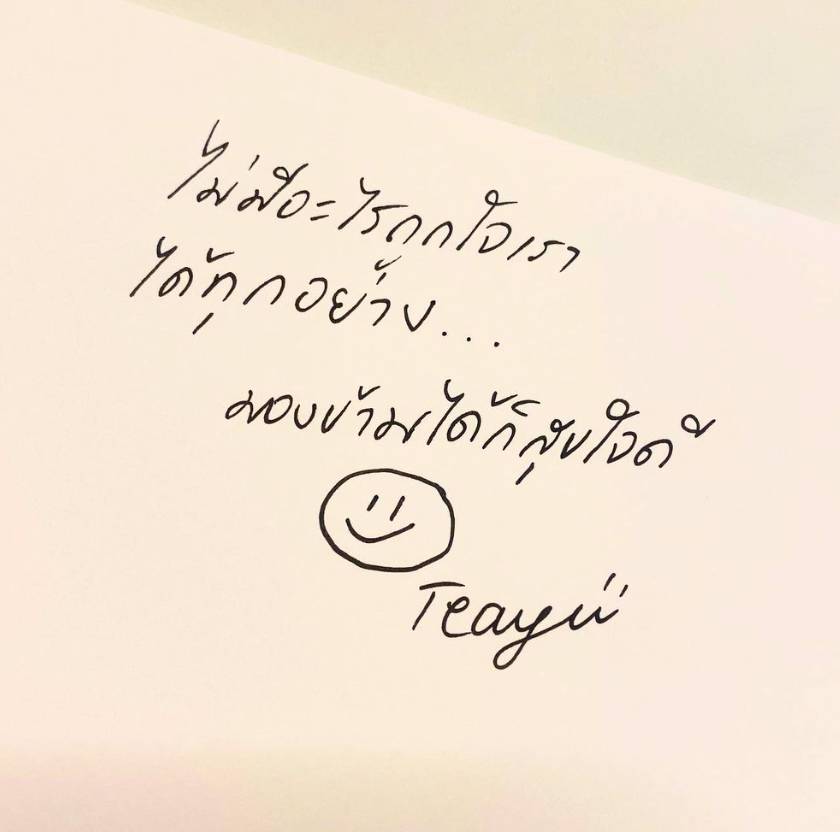 ไม่มีอะไรถูกใจเรา
ได้ทุกอย่าง...
มองข้ามได้ก็สุขใจดี